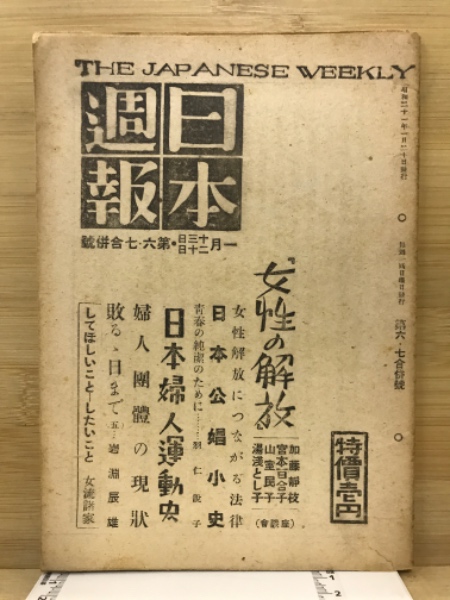 THE JAPANESE WEEKLY
日本
週報
一月十三日二十日•第六・七合併號
昭和二十一年一月二十日發行
第六・七合併號
『女性の解放』
加藤靜枝
宮本百合子
山室民子
湯淺とし子
(座談會)
女性解放につながる法律
日本公娼小史
青春の純潔のために……羽仁説子
日本婦人運動史
婦人團體の現狀
敗るゝ日まで(五)…岩淵辰雄
してほしいこと―したいこと 女流諸家
特價壱円